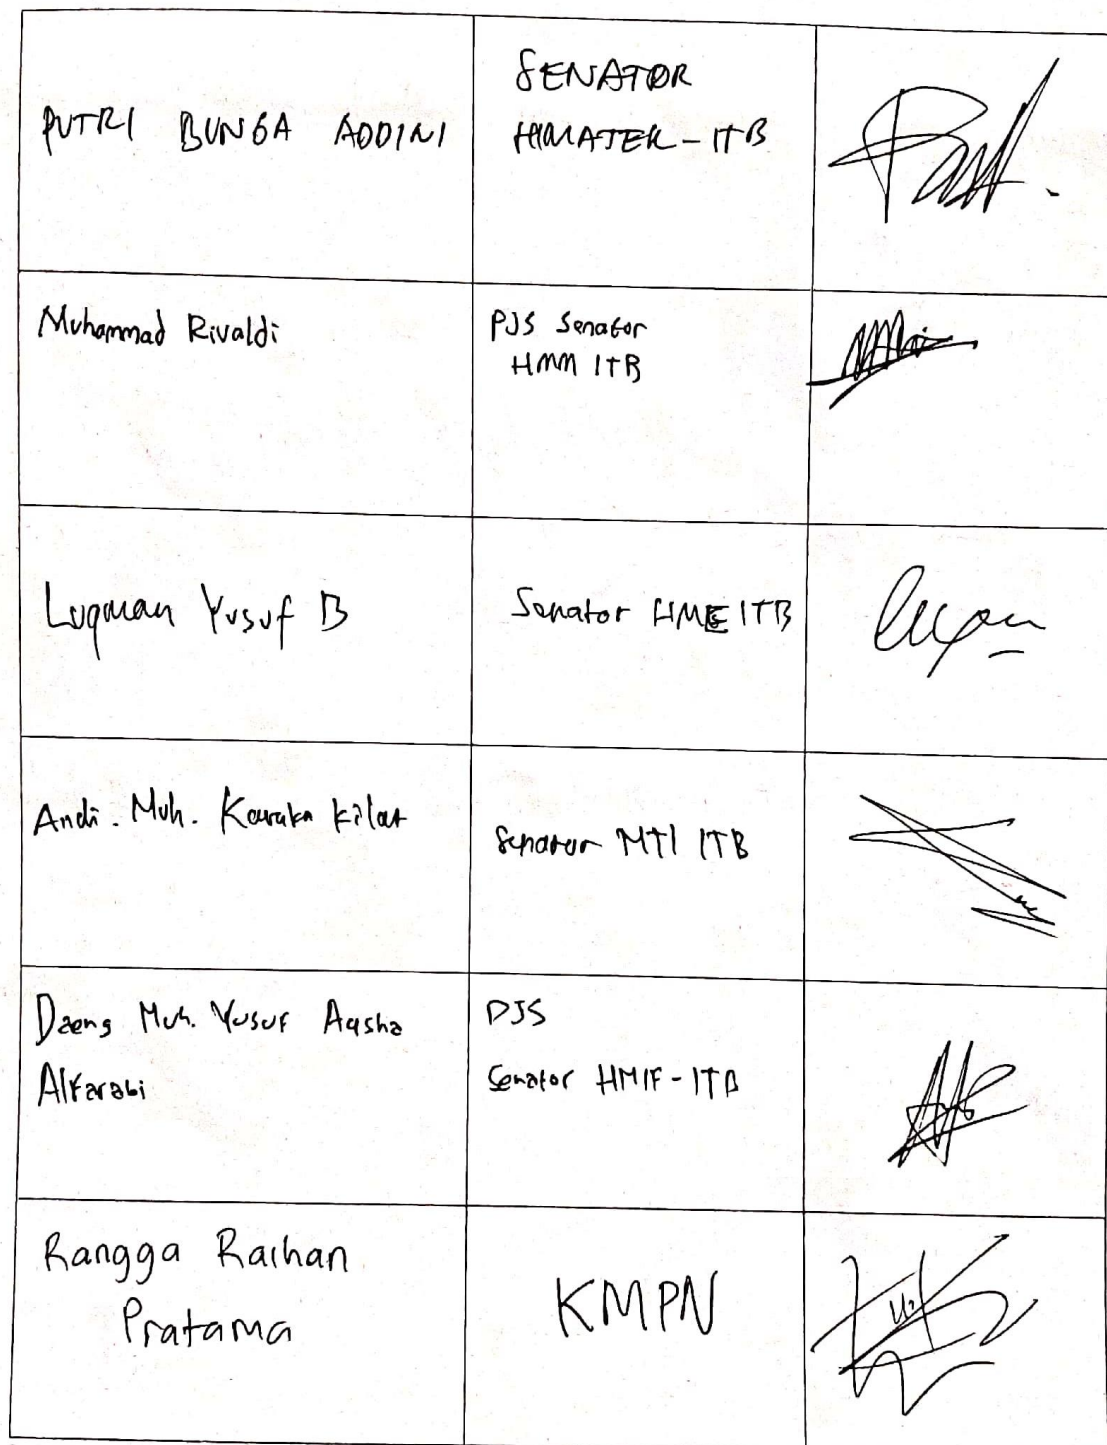 PUTRI BUNGA ADDINI
SENATOR
HIMATEK-ITB
Muhammad Rivaldi
PJS Senator
HMM ITB
Luqman Yusuf B
Senator HME ITB
Andi. Muh. Kilat
Senator MTI ITB
Daeng Muh. Yusuf Aqsha
Alfarabi
PJS
Senator HMIF-ITB
Rangga Raihan
Pratama
KMPN